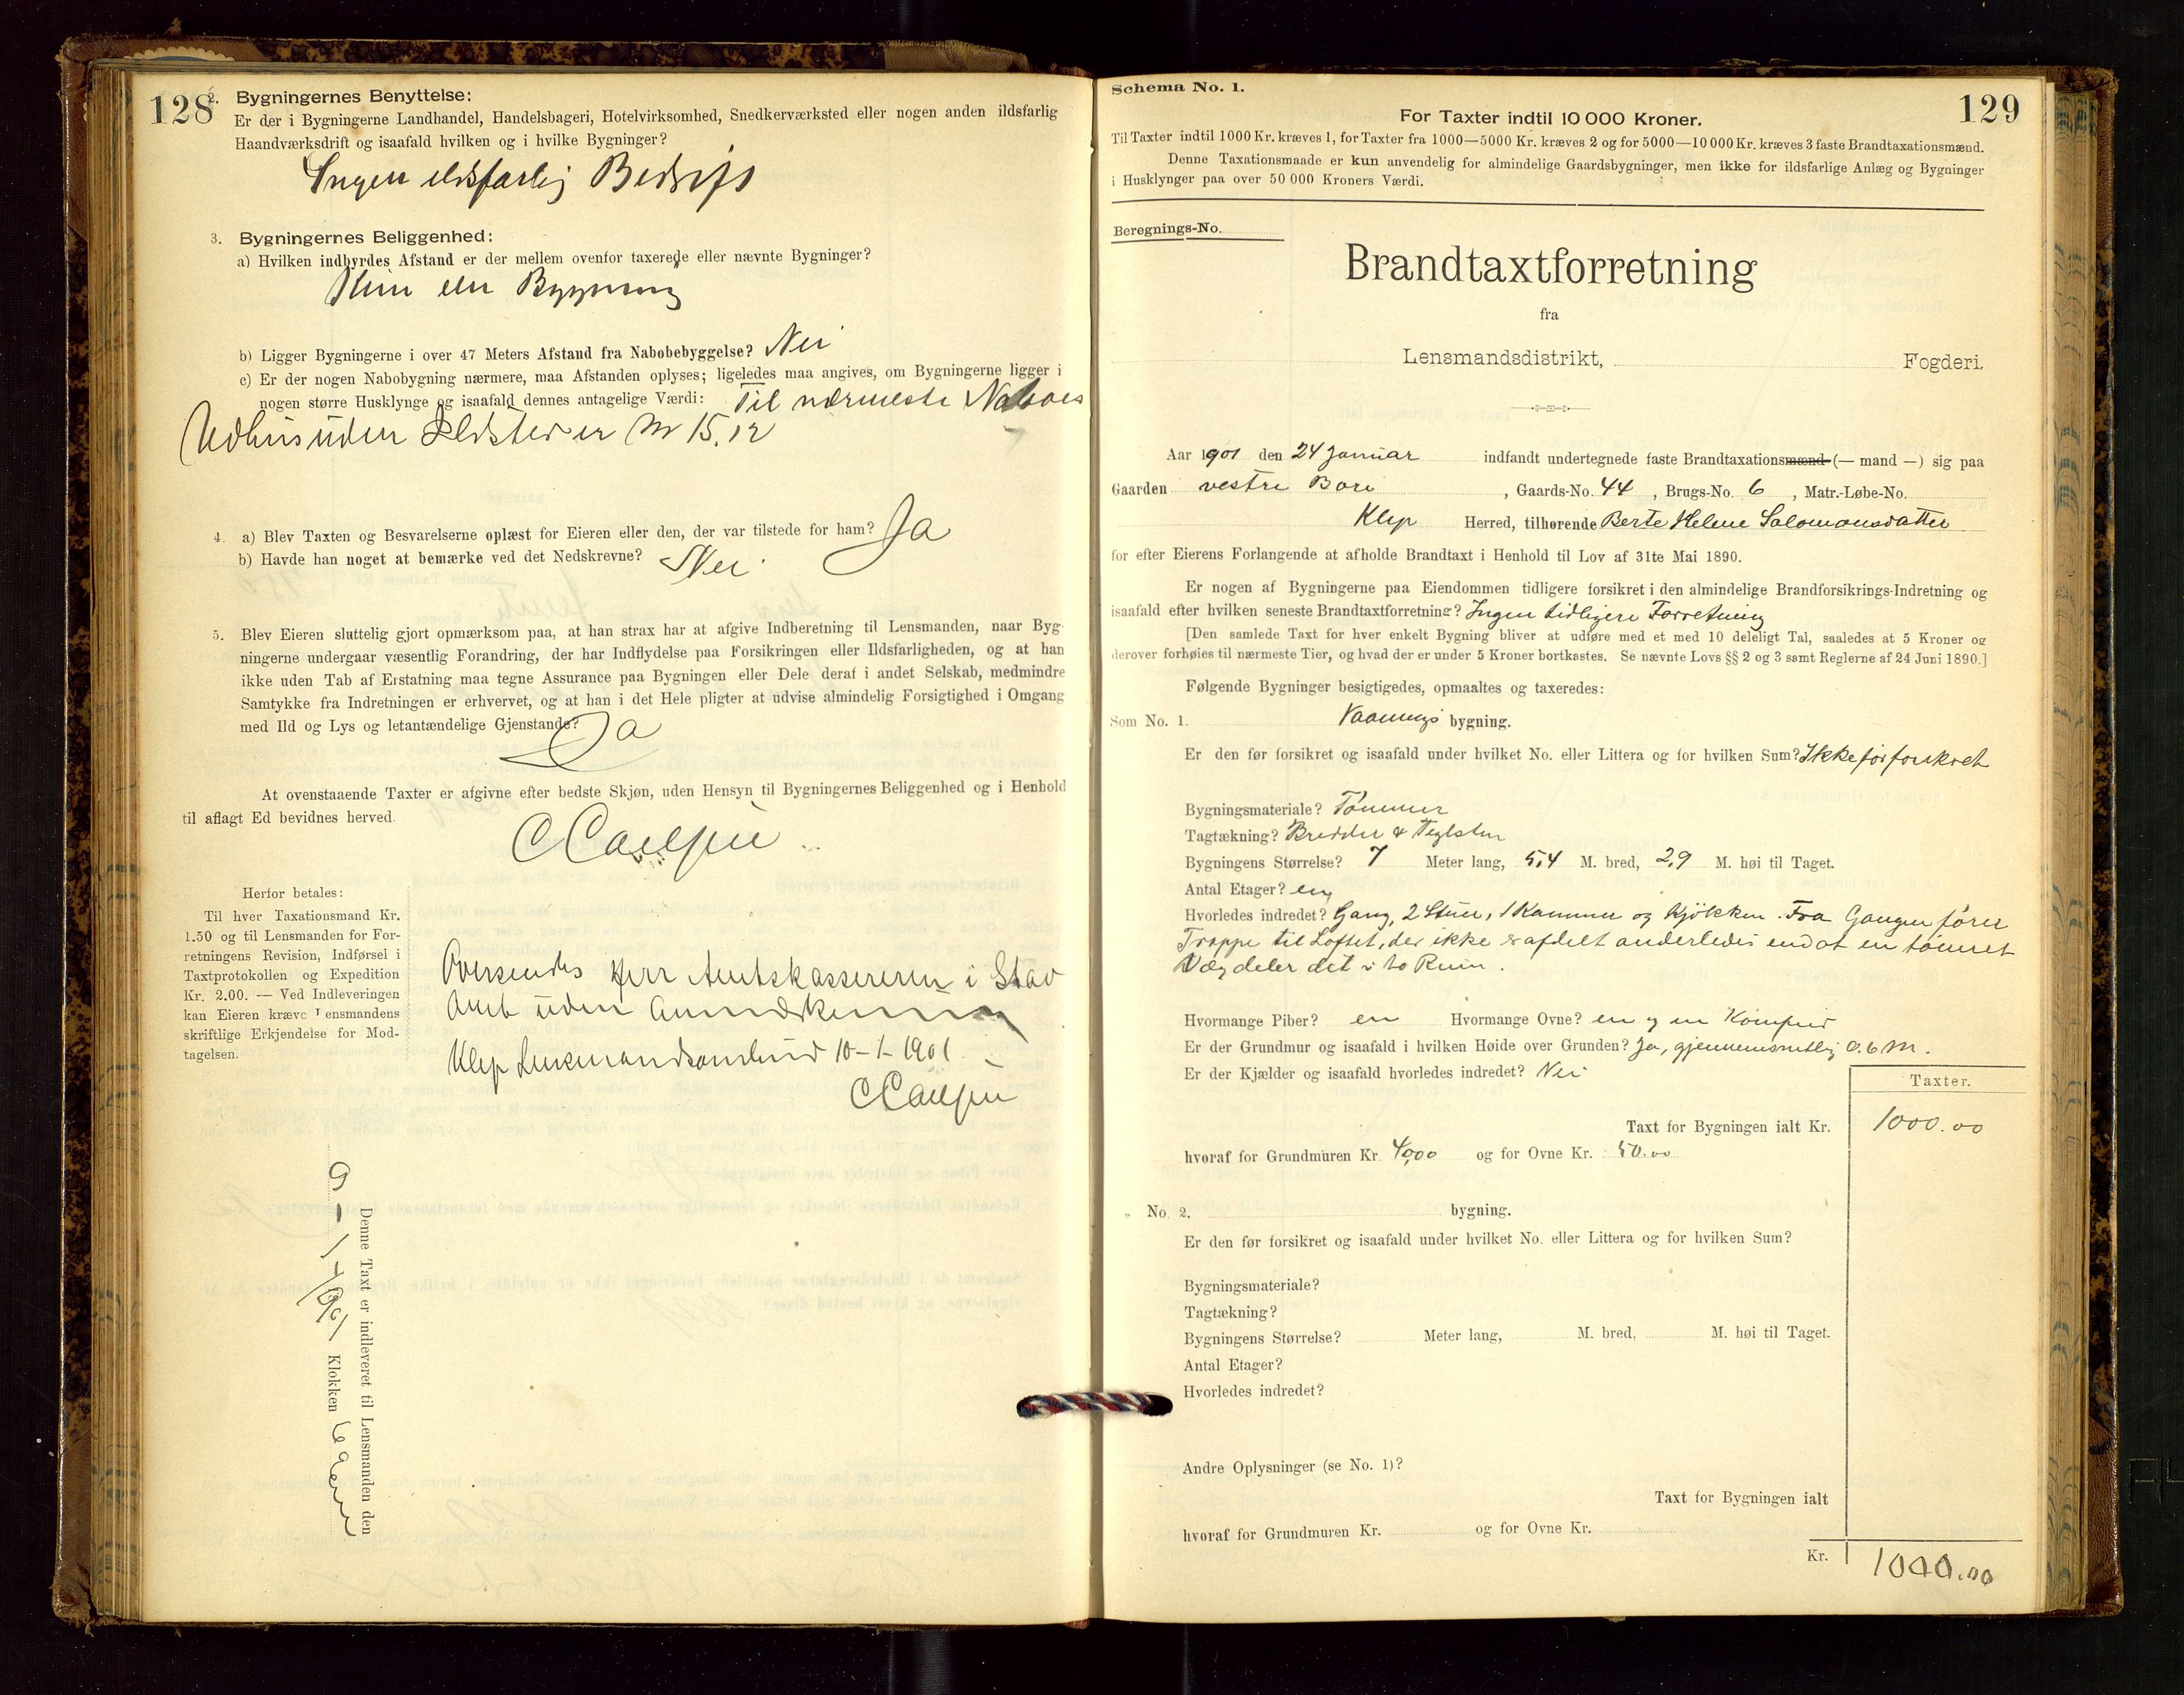 128
2. Bygningernes Benyttelse:
Er der i Bygningerne Landhandel, Handelsbageri, Hotelvirksomhed, Snedkerværksted eller nogen anden ildsfarlig
Haandværksdrift og isaafald hvilken og i hvilke Bygninger?
Ingen ildsfarlig Bedrift
3. Bygningernes Beliggenhed:
a) Hvilken indbyrdes Afstand er der mellem ovenfor taxerede eller nævnte Bygninger?
Kun een Bygning
b) Ligger Bygningerne i over 47 Meters Afstand fra Nabobebyggelse? Nei
c) Er der nogen Nabobygning nærmere, maa Afstanden oplyses; ligeledes maa angives, om Bygningerne ligger i
nogen større Husklynge og isaafald dennes antagelige Værdi: Til nærmeste Naboes
Udhus uden Ildsted er M 15.12
4. a) Blev Taxten og Besvarelserne oplæst for Eieren eller den, der var tilstede for ham? Ja
b) Havde han noget at bemærke ved det Nedskrevne? Nei.
5. Blev Eieren sluttelig gjort opmærksom paa, at han strax har at afgive Indberetning til Lensmanden, naar Byg-
ningerne undergaar væsentlig Forandring, der har Indflydelse paa Forsikringen eller Ildsfarligheden, og at han
ikke uden Tab af Erstatning maa tegne Assurance paa Bygningen eller Dele deraf i andet Selskab, medmindre
Samtykke fra Indretningen er erhvervet, og at han i det Hele pligter at udvise almindelig Forsigtighed i Omgang
med Ild og Lys og letantændelige Gjenstande?
Ja
At ovenstaaende Taxter er afgivne efter bedste Skjøn, uden Hensyn til Bygningernes Beliggenhed og i Henhold
til aflagt Ed bevidnes herved.
Herfor betales:
Til hver Taxationsmand Kr.
1.50 og til Lensmanden for For-
retningens Revision, Indførsel i
Taxtprotokollen og Expedition
Kr. 2.00. — Ved Indleveringen
kan Eieren kræve Lensmandens
skriftlige Erkjendelse for Mod-
tagelsen.
Oversendes Herr Amtskassereren i Stav
Amt uden Anmærkning
Klep Lensmandsombud 10-1-1901.
Denne Taxt er indleveret til Lensmanden den
9-1-1901 Klokken 6
Schema No. 1.
129
For Taxter indtil 10 000 Kroner.
Til Taxter indtil 1000 Kr. kræves 1, for Taxter fra 1000—5000 Kr. kræves 2 og for 5000—10 000 Kr. kræves 3 faste Brandtaxationsmænd.
Denne Taxationsmaade er kun anvendelig for almindelige Gaardsbygninger, men ikke for ildsfarlige Anlæg og Bygninger
i Husklynger paa over 50 000 Kroners Værdi.
Beregnings-No.
Brandtaxtforretning
fra
Lensmandsdistrikt, Fogderi.
Aar 1901 den 24 Januar indfandt undertegnede faste Brandtaxationsmænd (— mand —) sig paa
Gaarden vestre Bore , Gaards-No. 44 , Brugs-No. 6 , Matr.-Løbe-No.
Klep Herred, tilhørende Berte Helene Salomonsdatter
for efter Eierens Forlangende at afholde Brandtaxt i Henhold til Lov af 31te Mai 1890.
Er nogen af Bygningerne paa Eiendommen tidligere forsikret i den almindelige Brandforsikrings-Indretning og
isaafald efter hvilken seneste Brandtaxtforretning? Ingen tidligere Forretning
[Den samlede Taxt for hver enkelt Bygning bliver at udføre med et med 10 deleligt Tal, saaledes at 5 Kroner og
derover forhøies til nærmeste Tier, og hvad der er under 5 Kroner bortkastes. Se nævnte Lovs §§ 2 og 3 samt Reglerne af 24 Juni 1890.]
Følgende Bygninger besigtigedes, opmaaltes og taxeredes:
Som No. 1. Vaanings bygning.
Er den før forsikret og isaafald under hvilket No. eller Littera og for hvilken Sum? Ikke før forsikret
Bygningsmateriale? Tømmer
Tagtækning? Bredder & Teglsten
Bygningens Størrelse? 7 Meter lang, 5,4 M. bred, 2,9 M. høi til Taget.
Antal Etager? en
Hvorledes indredet? Gang, 2 Stuer, 1 Kammer og Kjøkken. Fra Gangen fører
Trappe til Loftet, der ikke er afdelt anderledes end at en tømret
Væg deler det i to Rum.
Hvormange Piber? en Hvormange Ovne? en og en Komfur
Er der Grundmur og isaafald i hvilken Høide over Grunden? Ja, gjennemsnitlig 0.6 M.
Er der Kjælder og isaafald hvorledes indredet? Nei
Taxter.
Taxt for Bygningen ialt Kr. 1000.00
hvoraf for Grundmuren Kr. 40,00 og for Ovne Kr. 50.00
„ No. 2. bygning.
Er den før forsikret og isaafald under hvilket No. eller Littera og for hvilken Sum?
Bygningsmateriale?
Tagtækning?
Bygningens Størrelse? Meter lang, M. bred, M. høi til Taget.
Antal Etager?
Hvorledes indredet?
Andre Oplysninger (se No. 1)?
Taxt for Bygningen ialt
hvoraf for Grundmuren Kr. og for Ovne Kr.
Kr. 1000.00